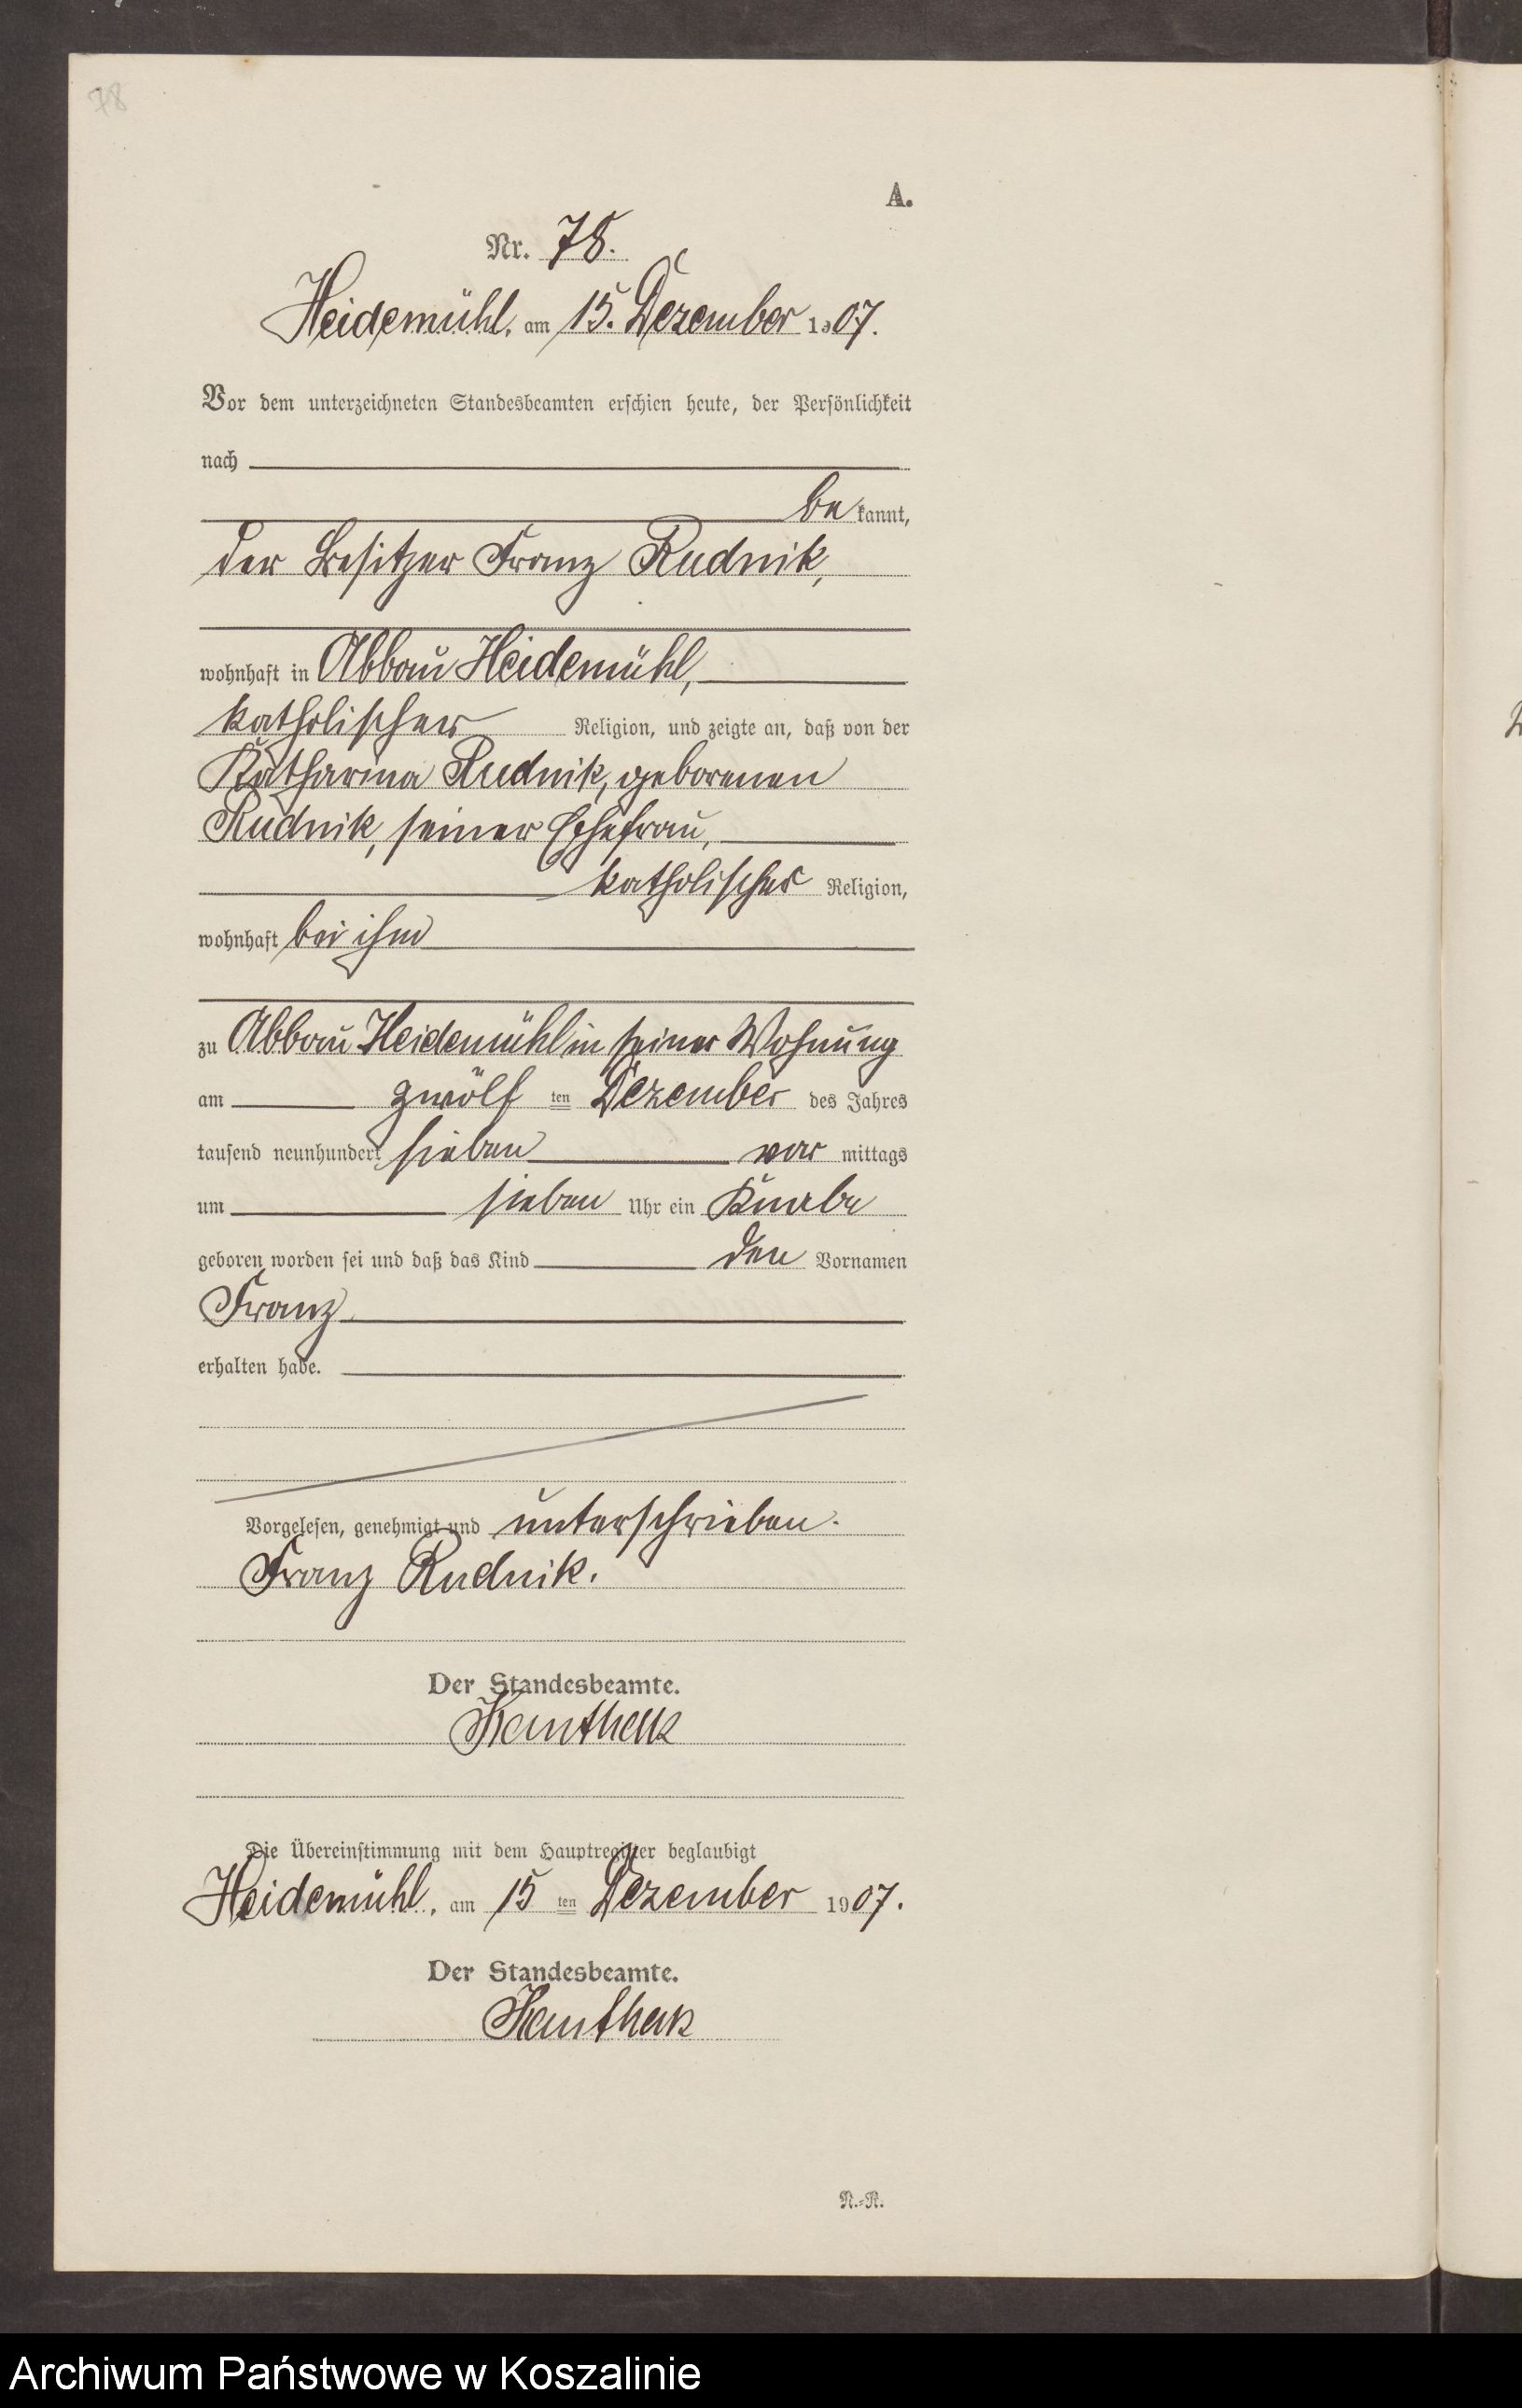 78
A.
Nr. 78.
Heidemühl, am 15. Dezember 1907.
Vor dem unterzeichneten Standesbeamten erschien heute, der Persönlichkeit
nach
be kannt,
der Besitzer Franz Rudnik,
wohnhaft in Abbau Heidemühl,
katholischer Religion, und zeigte an, daß von der
Katharina Rudnik, geborenen
Rudnik, seiner Ehefrau,
katholischer Religion,
wohnhaft bei ihm
zu Abbau Heidemühl in seiner Wohnung
am zwölf ten Dezember des Jahres
tausend neunhundert sieben vor mittags
um sieben Uhr ein Knabe
geboren worden sei und daß das Kind den Vornamen
Franz
erhalten habe.
Vorgelesen, genehmigt und unterschrieben.
Franz Rudnik.
Der Standesbeamte.
Die Übereinstimmung mit dem Hauptregister beglaubigt
Heidemühl, am 15 ten Dezember 1907.
Der Standesbeamte.
N.-R.
Archiwum Państwowe w Koszalinie